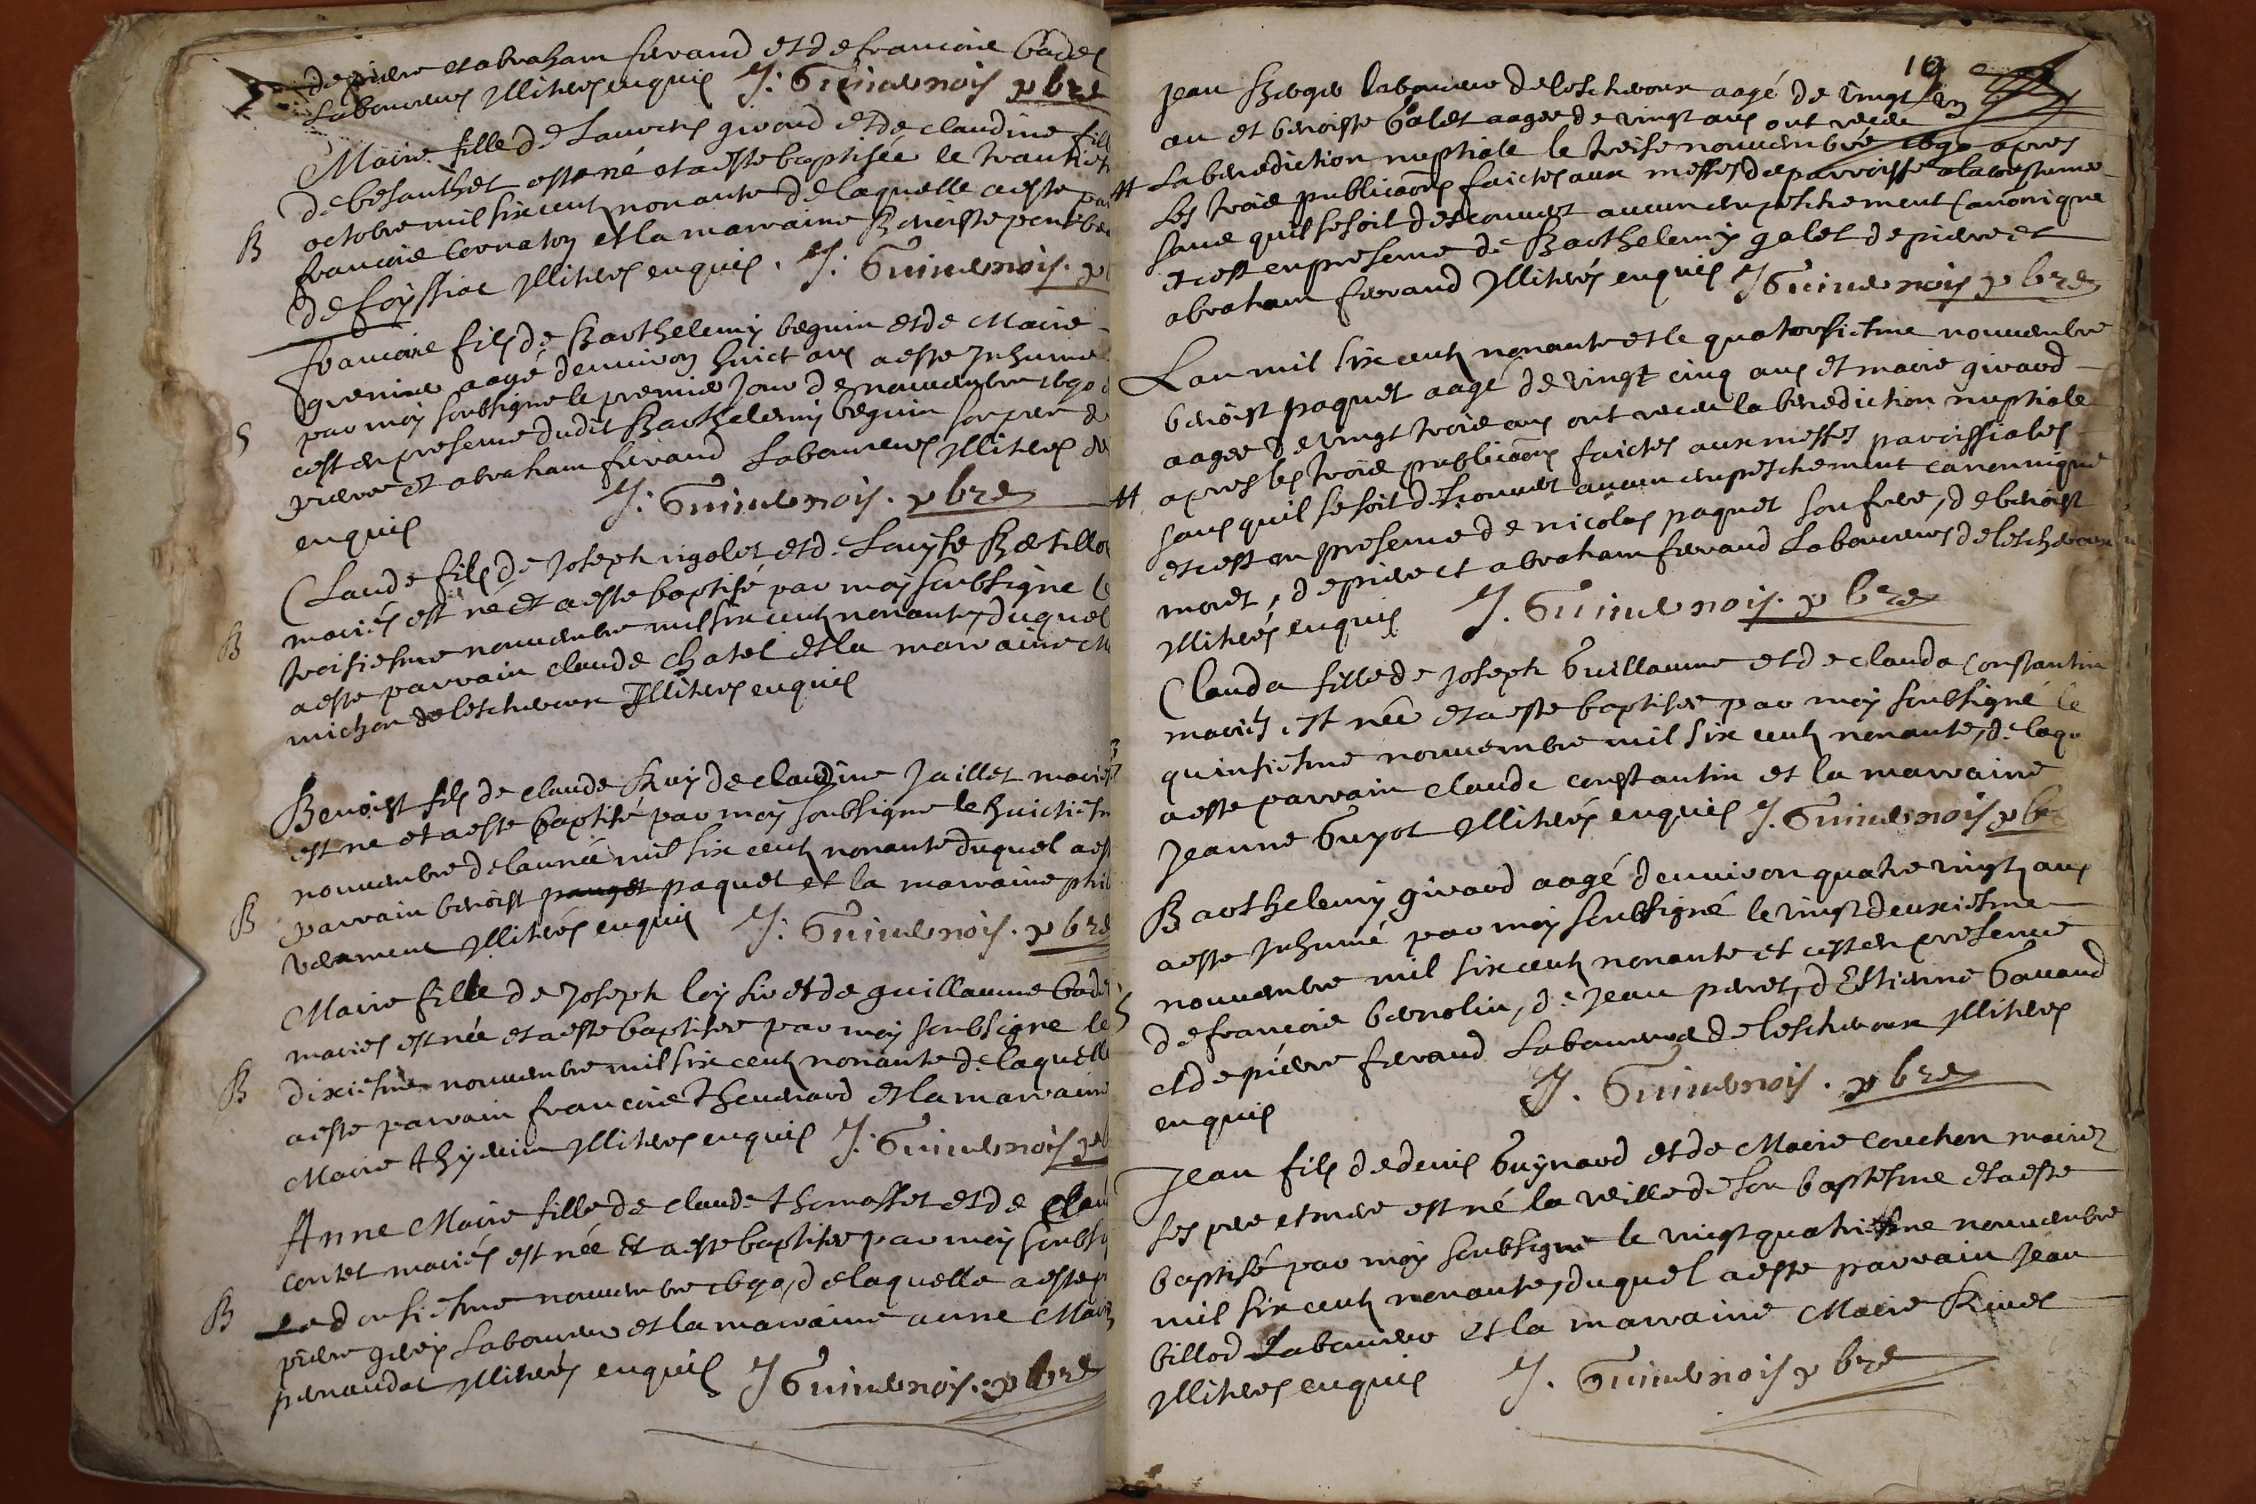 de pierre et abraham ferand et de francoise
Laboureurs Illiterés enquis J. Guinenois pbre
Marie fille de Laurens girard et de claudine fill
de besanthet est né et a esté baptisée le trantie
B
octobre mil six cent nonante de laquelle a esté pa
francois Cornaton et la marraine Benoiste
de foissiac Illiterés enquis. J. Guinenois. p
francois fils de Barthelemy beguin et de Marie
aagé denuiron huict ans a esté Inhumé
par moy soubsigné le premier Jour de nouembre 1690
S
cest en presence dudit Barthelemy beguin son pere de
pierre et abraham ferand Laboureurs Illiterés
enquis J. Guinenois. pbre
Claude fils de Joseph rigolet et de Louyse
mariés est né et a esté baptisé par moy soubsigné
B
troisiesme nouembre mil six cent nonante, duquel
a esté parrain claude chatel et la marraine
michon de lescheroux Illiterés enquis
Benoist fils de claude Ruy de claudine Jaillet mariés
est né et a esté baptisé par moy soubsigné le huictiesm
nouembre de lannée mil six cent nonante duquel a es
B
parrain benoist paquet et la marraine phil
Illiterés enquis J. Guinenois. pbre
Marie fille de Joseph loysir et de guillaume
mariés est née et a esté baptisée par moy soubsigné le
B
dixiesme nouembre mil six cent nonante de laquelle
a esté parrain francois Theuenard et la marraine
Marie Illiterés enquis J. Guinenois p
Anne Marie fille de claude thomasset et de
contet mariés est née Et a esté baptisée par moy soubs
B
le donsiesme nouembre 1690, de laquelle a esté p
pierre Laboureur et la marraine anne Mari
penaudat Illiterés enquis J Guinenois. pbre
19
Jean Berger laboureur de lescheroux aagé de vingt
an et benoiste Galet aagee de vingt ans ont receu
H
La benediction nuptiale le treise nouembre 1690 apres
Les trois publications faictes aux messes de parroisse a la coustume
sans quil se soit descouuert aucun empeschement Canonique
et cest en presence de Barthelemy galet de pierre et
abraham ferand Illiterés enquis J Guinenois pbre
Lan mil six cent nonante et le quatorsiesme nouembre
benoist paquet aagé de vingt cinq ans et marie girard
aagee de vingt trois ans ont receu la benediction nuptiale
H
apres les trois publications faictes aux messes parroissiales
sans quil se soit descouuert aucun empeschement canonnique
et cest en presence de nicolas paquet son frere, de benoist
moret, de pierre et abraham ferand Laboureurs de lescheroux
Illiterés enquis J. Guinenois. pbre
Clauda fille de Joseph Guillaume et de clauda Constantin
mariés est née et a esté baptisée par moy soubsigné le
quinsiesme nouuembre mil six cent nonante, de laqu
a esté parrain claude constantin et la marraine
Jeanne Guyot Illiterés enquis J. Guinenois pb
Barthelemy girard aagé denuiron quatre vingt ans
a esté Inhumé par moy soubsigné le vingt deuxiesme
nouembre mil six cent nonante et cest en presence
S
de francois bernolin, de Jean peret, d Estienne Gauand
et de pierre ferand Laboureurs de lescheroux Illiterés
enquis J. Guinenois. pbre
Jean fils de denis Guynard et de Marie couchon mariez
ses pere et mere est né la veille de son baptesme et a esté
baptisé par moy soubsigné le vingt quatriesme nouuembre
mil six cent nonante, duquel a esté parrain Jean
billod Laboureur et la marraine Marie
Illiterés enquis J. Guinenois pbre